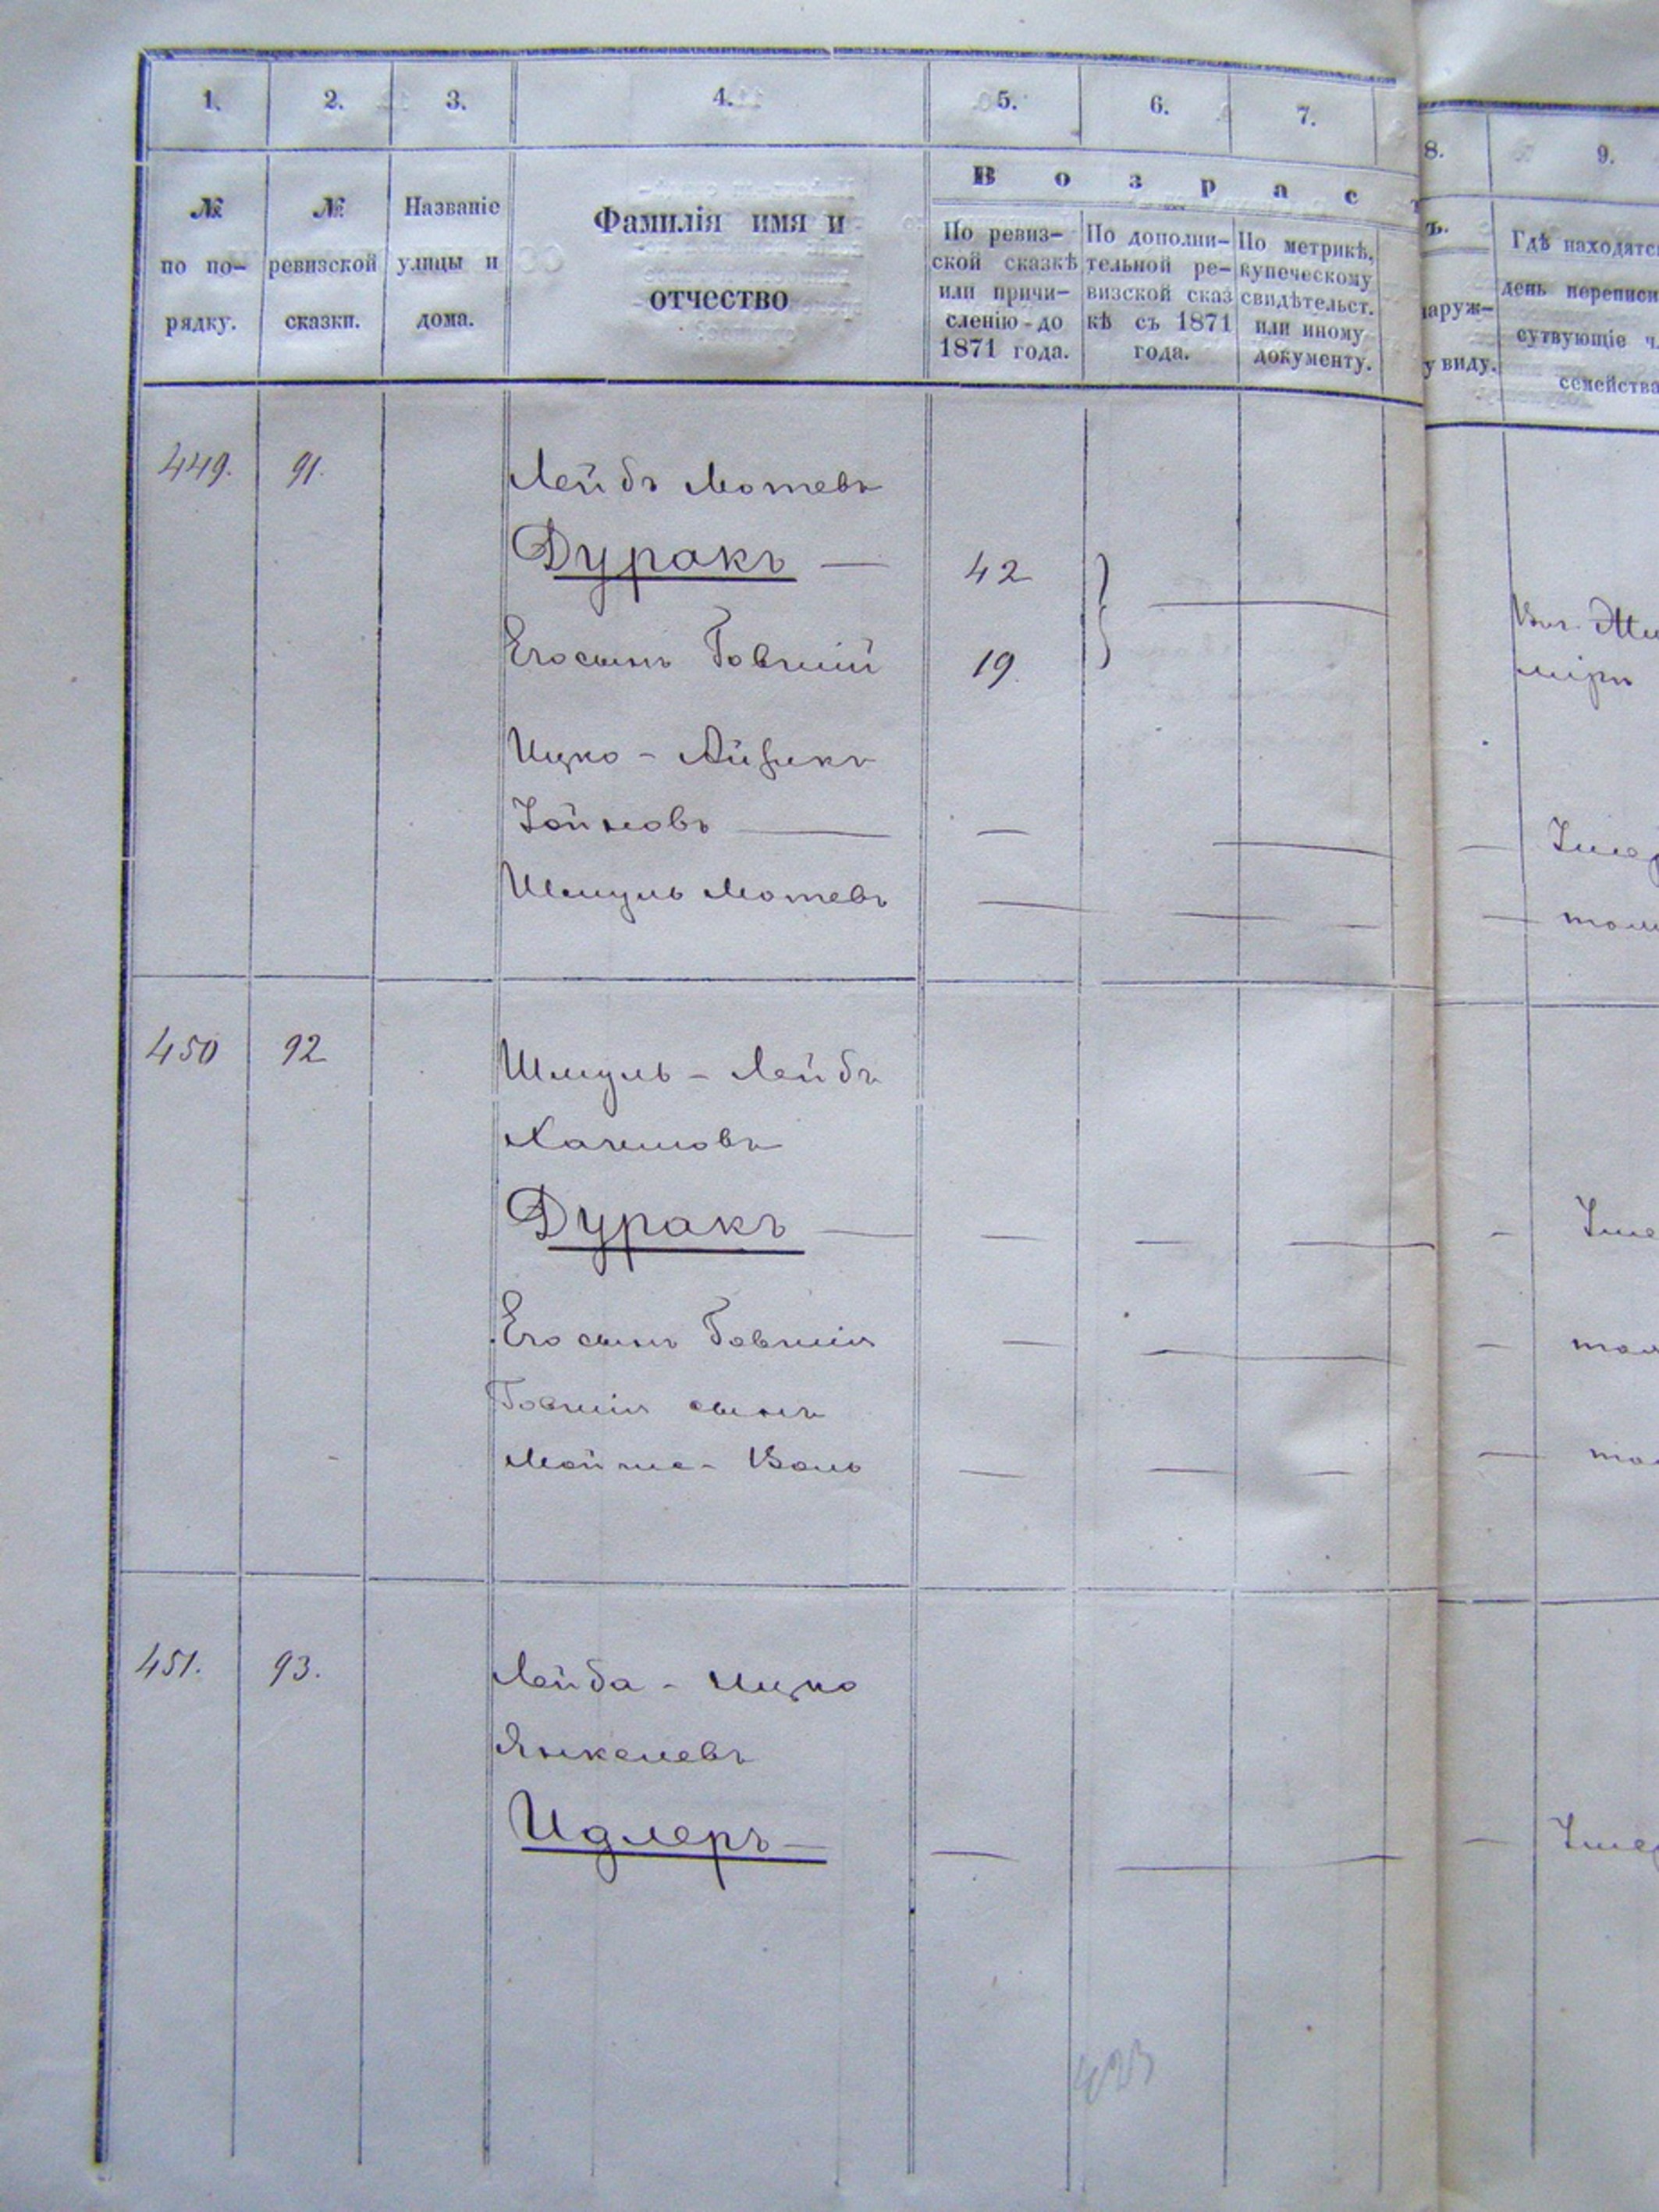 1. 2. 3. 4. 5. 6. 7. 8. 9.
№ по по-рядку.
№ ревизской сказки.
Названіе улицы и дома.
Фамилія имя и отчество
Возраст
ъ.
По ревиз-
ской сказкѣ
или причи-
сленію до
1871 года.
По дополни-
тельной ре-
визской сказ
кѣ съ 1871
года.
По метрикѣ,
купеческому
свидѣтельст.
или иному
документу.
наруж-
у виду.
Гдѣ находятс
день переписи
сутвующіе ч
семейства
449. 91. Лейбъ Мотевъ
Дуракъ — 42
Его сынъ Говшій 19
Ицко - Айзикъ
Іойновъ — —
Шмуль Мотевъ —
450 92 Шмуль - Лейбъ
Дуракъ — —
Его сынъ Говшія —
Говшія сынъ
Мойше - Волъ —
451. 93. Лейба - Ицко
Янкелевъ
Идлеръ — —